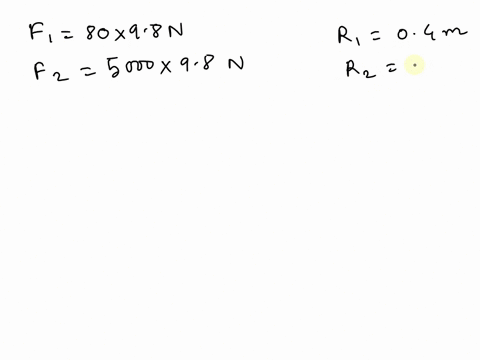 F₁ = 80 × 9.8 N
F₂ = 5000 × 9.8 N
R₁ = 0.4 m
R₂ = .